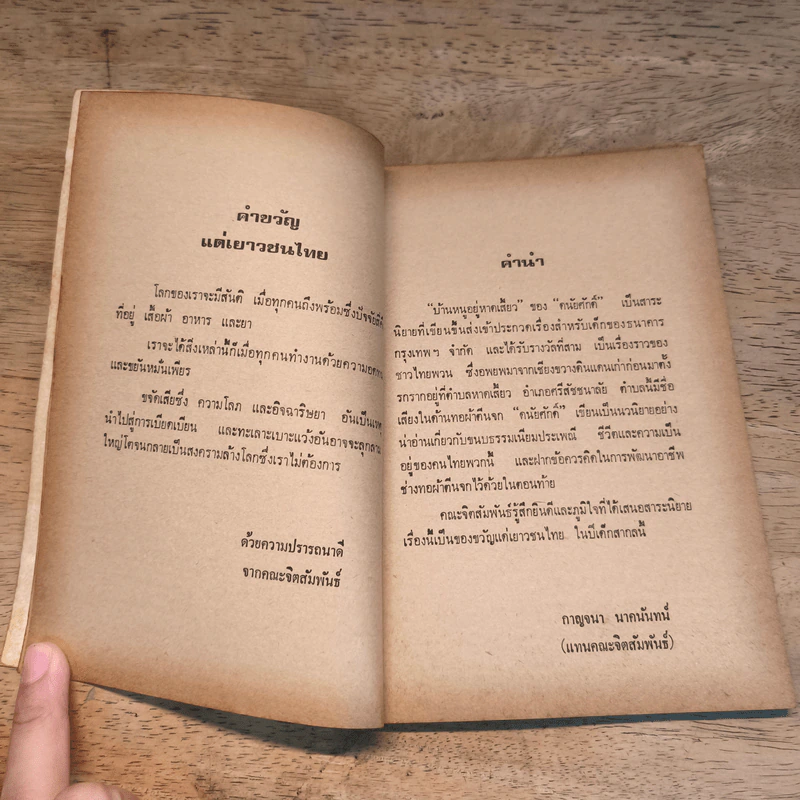 คำขวัญ
แต่เยาวชนไทย
โลกของเราจะมีสันติ เมื่อทุกคนถึงพร้อมซึ่งปัจจัยสี่คื
ที่อยู่ เสื้อผ้า อาหาร และยา
เราจะได้สิ่งเหล่านี้ก็เมื่อทุกคนทำงานด้วยความอดทน
และขยันหมั่นเพียร
ขจัดเสียซึ่ง ความโลภ และอิจฉาริษยา อันเป็นเหตุ
นำไปสู่การเบียดเบียน และทะเลาะเบาะแว้งอันอาจจะลุกลาม
ใหญ่โตจนกลายเป็นสงครามล้างโลกซึ่งเราไม่ต้องการ
ด้วยความปรารถนาดี
จากคณะจิตสัมพันธ์
คำนำ
"บ้านหนูอยู่หาดเสี้ยว" ของ "ดนัยศักดิ์" เป็นสาระ
นิยายที่เขียนขึ้นส่งเข้าประกวดเรื่องสำหรับเด็กของธนาคาร
กรุงเทพฯ จำกัด และได้รับรางวัลที่สาม เป็นเรื่องราวของ
ชาวไทยพวน ซึ่งอพยพมาจากเชียงขวางดินแดนเก่าก่อนมาตั้ง
รกรากอยู่ที่ตำบลหาดเสี้ยว อำเภอศรีสัชชนาลัย ตำบลนี้มีชื่อ
เสียงในด้านทอผ้าตีนจก "ดนัยศักดิ์" เขียนเป็นนวนิยายอย่าง
น่าอ่านเกี่ยวกับขนบธรรมเนียมประเพณี ชีวิตและความเป็น
อยู่ของคนไทยพวกนี้ และฝากข้อควรคิดในการพัฒนาอาชีพ
ช่างทอผ้าตีนจกไว้ด้วยในตอนท้าย
คณะจิตสัมพันธ์รู้สึกยินดีและภูมิใจที่ได้เสนอสาระนิยาย
เรื่องนี้เป็นของขวัญแด่เยาวชนไทย ในปีเด็กสากลนี้
กาญจนา นาคนันทน์
(แทนคณะจิตสัมพันธ์)